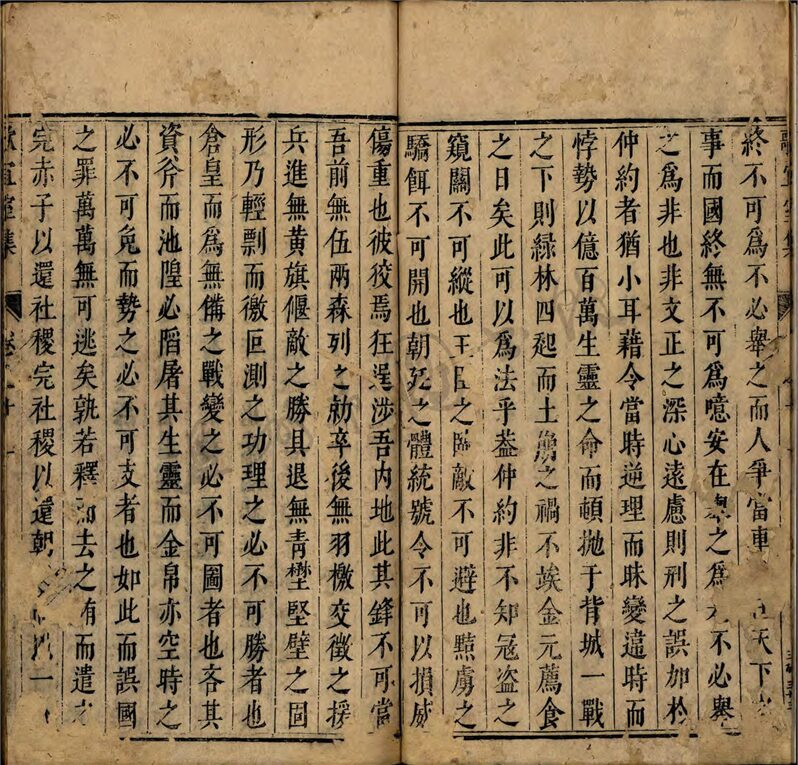 宜室集
終不可爲不必舉之而人爭當車天下
事而國終無不可爲噫安在舉之爲不必舉
之爲非也非文正之深心遠慮則刑之誤加於
仲約者猶小耳藉令當時逆理而昧變違時而
悖勢以億百萬生靈之命而頓拋于背城一戰
之下則緑林四起而土崩之禍不埃金元薦食
之日矣此可以爲法乎葢仲約非不知冦盗之
窺關不可縱也王臣之臨敵不可避也黠虜之
驕餌不可開也朝廷之體統號令不可以損威
傷重也彼役焉狂逞涉吾内地此其鋒不可當
吾前無伍兩森列之勍卒後無羽檄交徵之援
兵進無黄旗偃敵之勝具退無青壄堅壁之固
形乃輕剽而徼叵測之功理之必不可勝者也
倉皇而爲無備之戰變之必不可圖者也吝其
資斧而池隍必陷屠其生靈而金帛亦空時之
必不可免而勢之必不可支者也如此而誤國
之罪萬萬無可逃矣孰若釋去之而遣之
完赤子以還社稷完社稷以還朝一
宜室集 卷